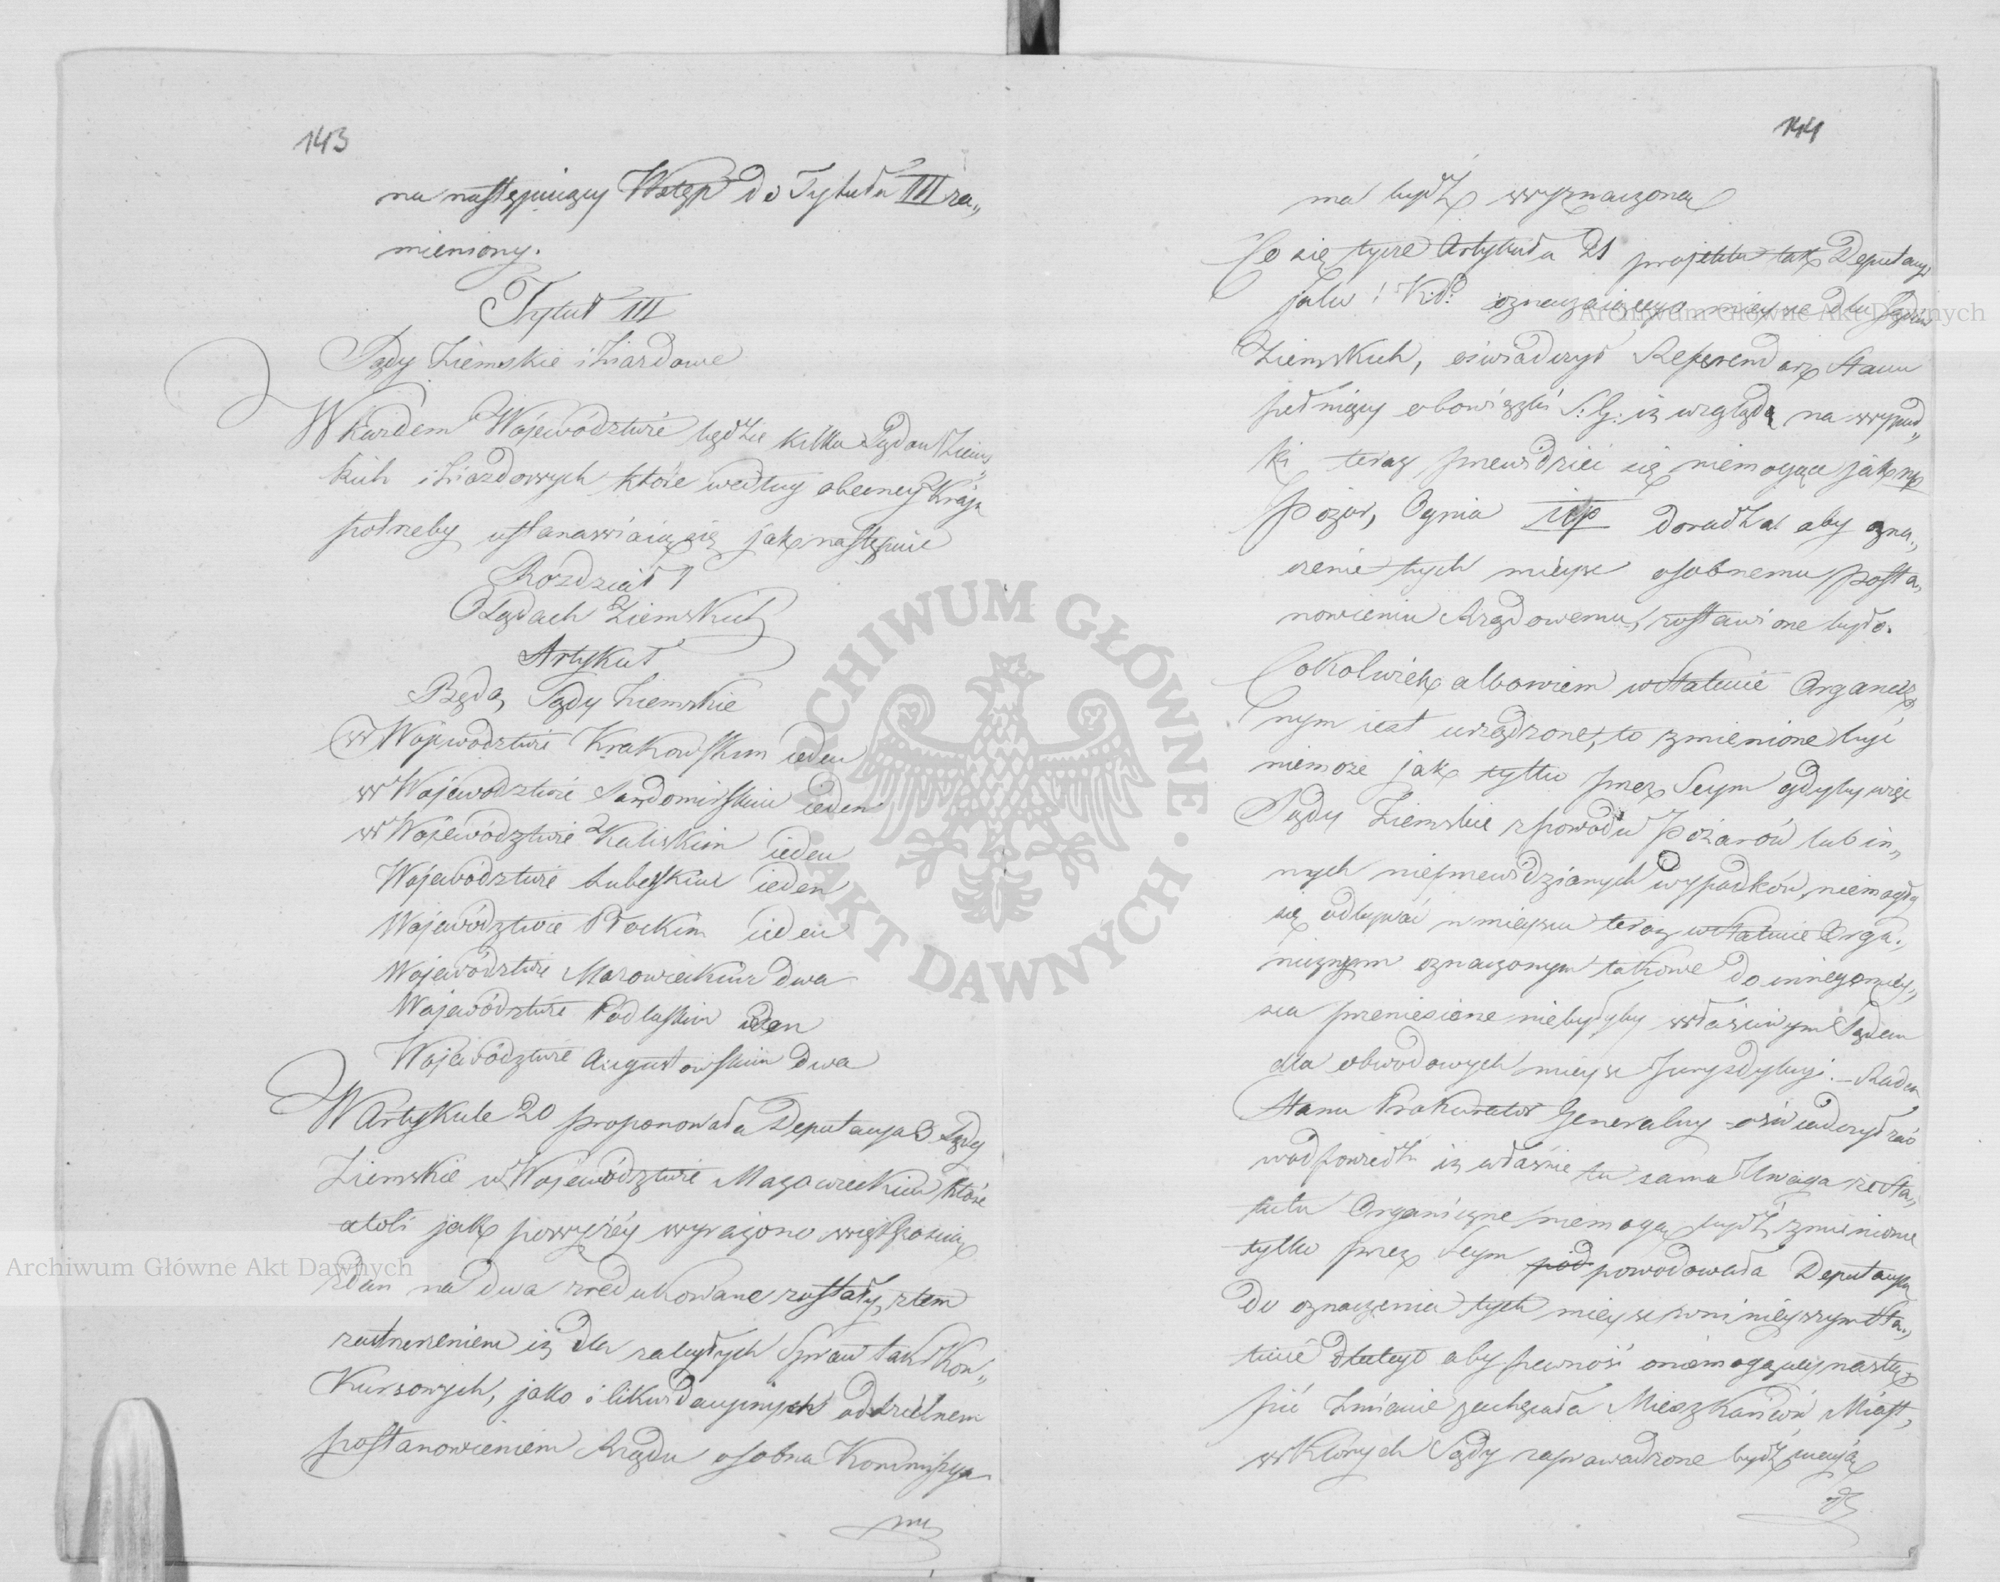 143
na następuiący Wstęp do Tytułu III za„
mieniony.
Tytuł III
Sądy Ziemskie i Ziazdowe
W każdem Województwie będzie kilka Sądów Ziems„
kich i Ziazdowych które według obecney Kraju
potrzeby ustanawiaią się jak następuie
Rozdział I
O Sądach Ziemskich
Artykuł
Będą Sądy Ziemskie
w Województwie Krakowskim ieden
w Województwie Sandomirskim ieden
w Województwie Kaliskim ieden
Województwie Lubelskim ieden
Województwie Płockim ieden
Województwie Mazowieckim dwa
Województwie Podlaskim ieden
Województwie Augustowskim dwa
W Artykule 20 proponowała Deputacya 3 Sądy
Ziemskie w Województwie Mazowieckim które
atoli jak powyżéy wyrażono większością
zdań na dwa zredukowane zostały, z tem
zastrzeżeniem iż dla zaległych Spraw tak Kon„
Kursowych, jako i likwidacyinych oddzielnem
postanowieniem Rządu osobna Kommissya
ma
144
ma bydź wyznaczoną
Co się tycze Artykułu 21 projektu tak Deputacyi
jako i K: R: oznaczaiącego mieysce dla Sądów
Ziemskich, oświadczył Referendarz Stanu
pełniący obowiązki S: G: iż względu na wypad„
ki teraz przewidzieć się niemogące jak np
Pożar, Ognia itp doradzał aby ozna„
czenie tych mieysc osobnemu posta„
nowieniu Rządowemu, zostawione było.
Cokolwiek albowiem w Statucie Organicz
nym iest urządzone, to zmienione być
niemoże jak tylko przez Seym gdyby więc
Sądy Ziemskie z powodu Pożarów lub in„
nych nieprzewidzianych wypadków, niemogły
się odbywać w mieyscu teraz w Statucie Orga„
nicznym oznaczonym takowe do innego miey„
sca przeniesione niebyłyby właściwym Sądem
dla obwodowych mieysc Juryzdykcyi. – Radca
Stanu Prokurator Generalny oświadczył zaś
w odpowiedzi iż właśnie ta sama Uwaga iż Sta„
tuta Organiczne niemogą bydź zmienione
tylko przez Seym powodowała Deputacyą
do oznaczenia tych mieysc w ninieyszym Sta„
tucie dlatego aby pewność o niemogącey nastą„
pić Zmianie zachęcała Mieszkańców Miast,
w Których Sądy zaprowadzone bydź maią